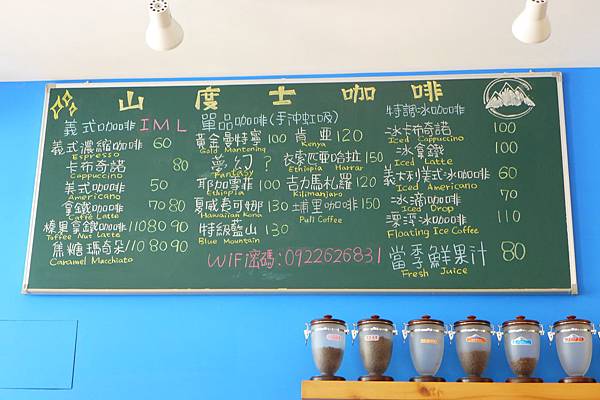 山度士咖啡
義式咖啡 I M L
義式濃縮咖啡 60
Espresso
卡布奇諾 80
Cappuccino
義式咖啡 50
Americano
拿鐵咖啡 70 80
Caffè Latte
榛果拿鐵咖啡 110 80 90
Toffee Nut Latte
焦糖瑪奇朵 110 80 90
Caramel Macchiato
單品咖啡(手沖虹吸)
黃金曼特寧 100 肯亞 120
Gold Mantening Kenya
夢幻? 衣索匹亞哈拉 150
Fantasy Ethiopia Harrar
耶加雪菲 100 吉力馬札羅 120
Ethiopia Kilimanjaro
夏威夷可娜 130 埔里咖啡 150
Hawaiian Kona Puli Coffee
特級藍山 130
Blue Mountain
WiFi密碼:0922626831
特調冰咖啡
冰卡布奇諾 100
Iced Cappuccino
冰拿鐵 100
Iced Latte
義大利美式冰咖啡 60
Iced Americano
冰滴咖啡 70
Iced Drop
漂浮冰咖啡 110
Floating Ice Coffee
當季鮮果汁 80
Fresh Juice